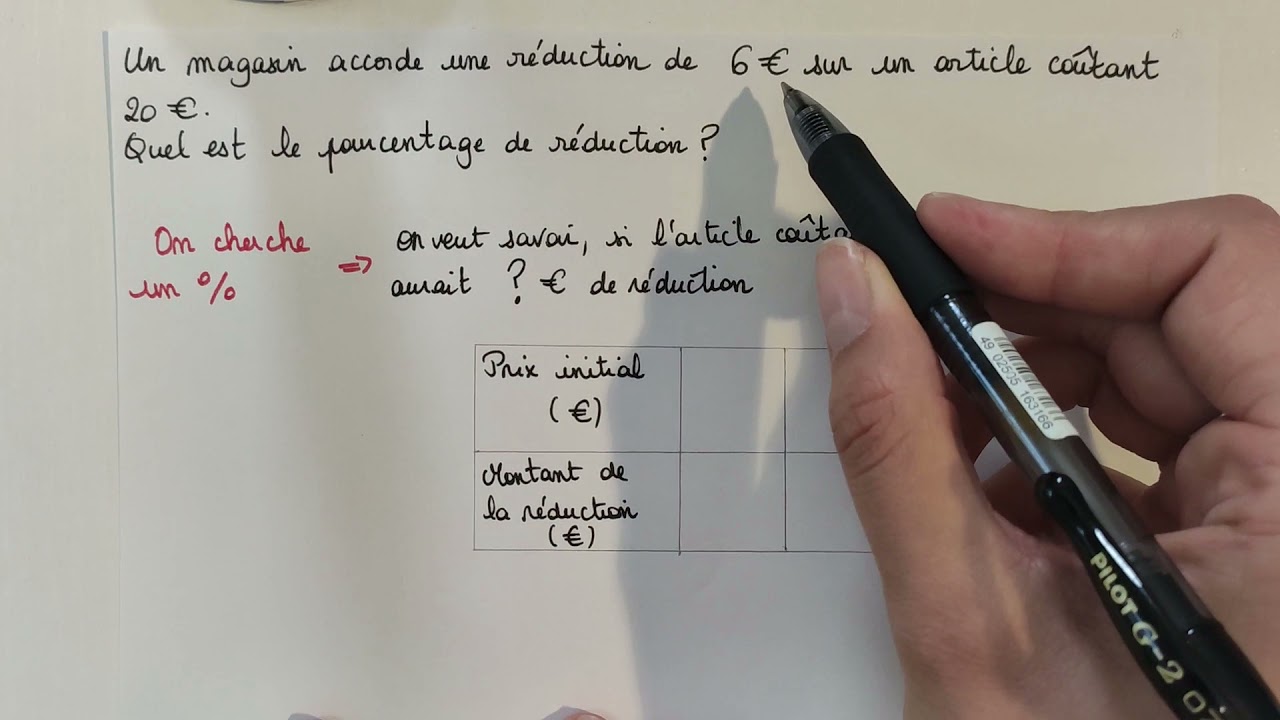 Un magasin accorde une réduction de 6 € sur un article coûtant
20 €.
Quel est le pourcentage de réduction ?
On cherche
un %
⇒ on veut savoi, si l'article coûta
aurait ? € de réduction
Prix initial
(€)
Montant de
la réduction
(€)
49 02505 163166
PILOT G-2 07